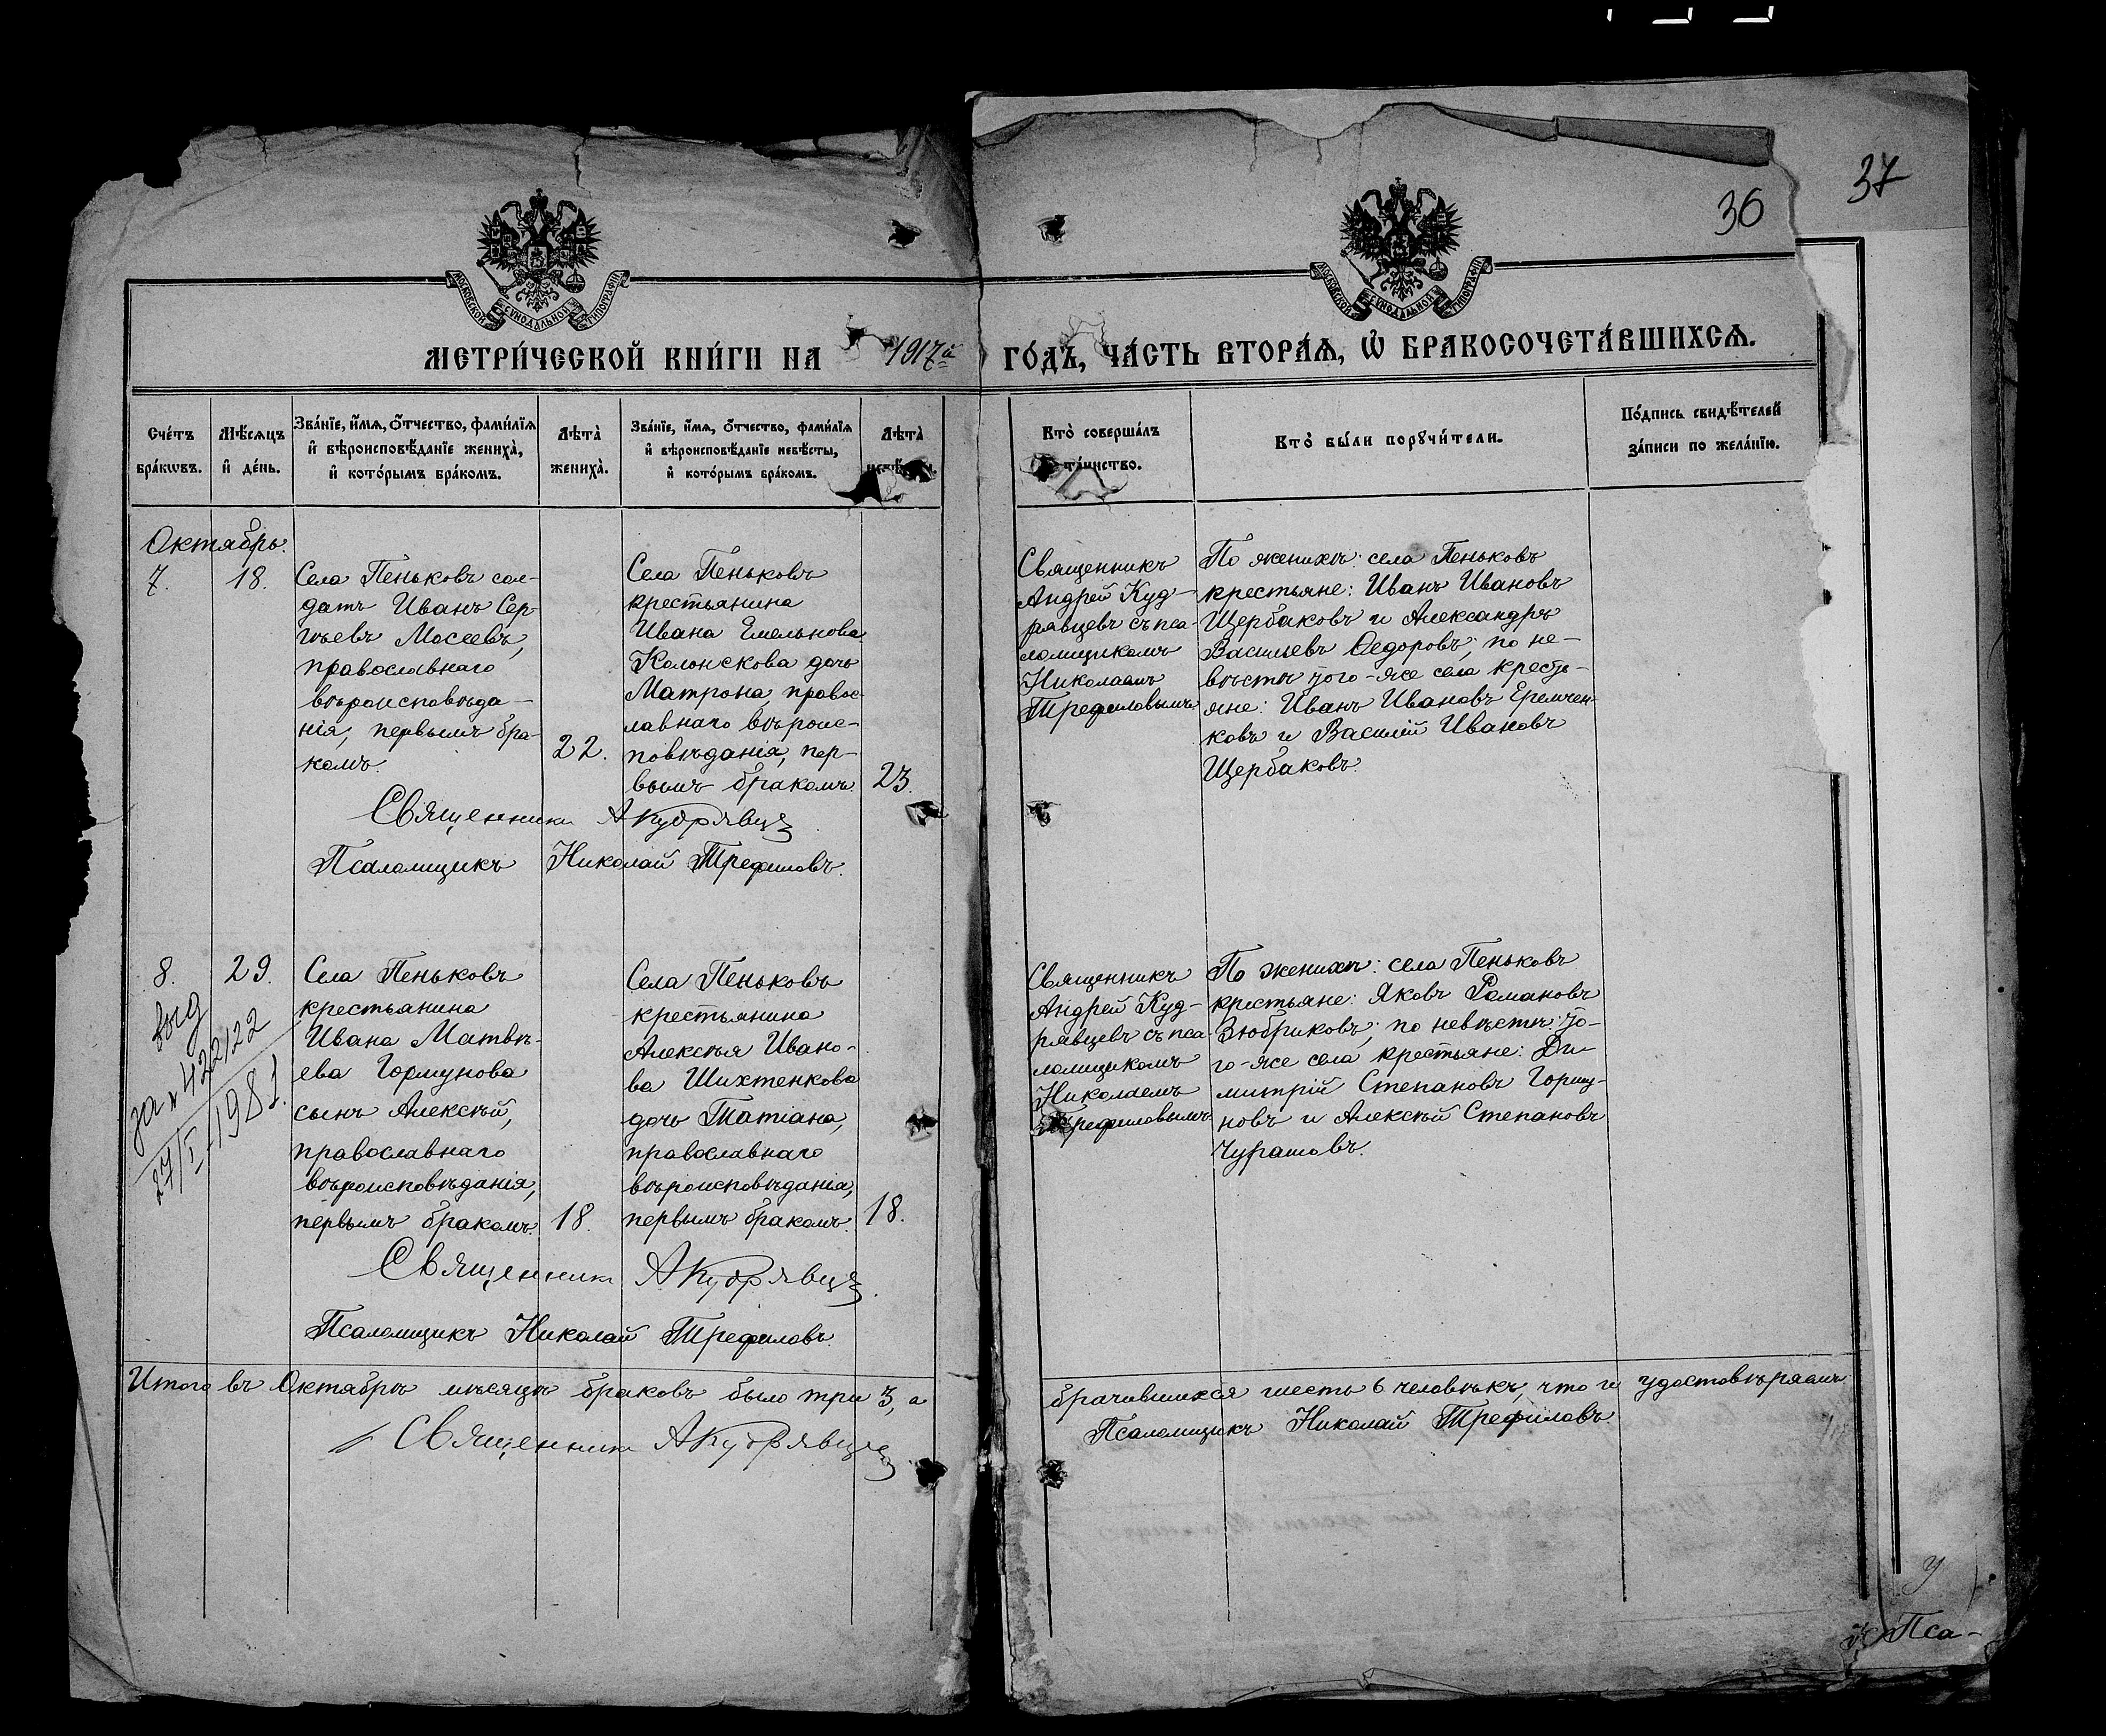 36
37
МОСКОВСКОЙ СУНОДАЛЬНОЙ ТИПОГРАФІИ
МОСКОВСКОЙ СУНОДАЛЬНОЙ ТИПОГРАФІИ
МЕТРИ́ЧЕСКОЙ КНИ́ГИ НА 1917й ГО́ДЪ, ЧА́СТЬ ВТОРА́Ѧ, Ѡ҆ БРАКОСОЧЕТА́ВШИХСѦ.
Сче́тъ
бра́кѡвъ.
Мѣ́сяцъ
и҆ де́нь.
Зва́нїе, и҆́мя, ѻ҆́тчество, фами́лїя
и҆ вѣроисповѣ́данїе жениха̀,
и҆ кото́рымъ бра́комъ.
Лѣта̀
жениха̀.
Зва́нїе, и҆́мя, ѻ҆́тчество, фами́лїя
и҆ вѣроисповѣ́данїе невѣ́сты,
и҆ кото́рымъ бра́комъ.
Лѣта̀
невѣ́сты.
Кто̀ соверша́лъ
та́инство.
Кто̀ бы́ли порꙋчи́тели.
По́дпись свидѣ́телей
за́писи по жела́нїю.
Октябрь.
7.
18.
Села Пеньковъ сол-
датъ Иванъ Сер-
гѣевъ Мосеевъ,
православнаго
вѣроисповѣда-
нія, первымъ бра-
комъ.
22.
Села Пеньковъ
крестьянина
Ивана Емельнова
Колонскова дочь
Матрона, правос-
лавнаго вѣроис-
повѣданія, пер-
вымъ бракомъ
23.
Священникъ
Андрей Куд-
рявцевъ съ пса-
ломщикомъ
Николаемъ
Трефиловымъ
По женихѣ: села Пеньковъ
крестьяне: Иванъ Ивановъ
Щербаковъ и Александръ
Васильевъ Ѳедоровъ; по не-
вѣстѣ того-же села кресть-
яне: Иванъ Ивановъ Еремчен-
ковъ и Василій Ивановъ
Щербаковъ.
Священникъ АКудрявцевъ
Псаломщикъ Николай Трефиловъ.
8.
29.
выд
за № 422/22
27/I-1981.
Села Пеньковъ
крестьянина
Ивана Матвѣ-
ева Горшунова
сынъ Алексѣй,
православнаго
вѣроисповѣданія,
первымъ бракомъ.
18.
Села Пеньковъ
крестьянина
Алексѣя Ивано-
ва Шихтенкова
дочь Татіана,
православнаго
вѣроисповѣданія,
первымъ бракомъ.
18.
Священникъ
Андрей Куд-
рявцевъ съ пса-
ломщикомъ
Николаемъ
Трефиловымъ
По женихѣ: села Пеньковъ
крестьяне: Яковъ Романовъ
Зюбриковъ; по невѣстѣ: то-
го-же села крестьяне: Ди-
митрій Степановъ Горшу-
новъ и Алексѣй Степановъ
Чурашовъ.
Священникъ АКудрявцевъ.
Псаломщикъ Николай Трефиловъ.
Итого въ Октябрѣ мѣсяцѣ браковъ было три 3, а брачившихся шесть 6 человѣкъ, что и удостовѣряемъ
Священникъ АКудрявцевъ Псаломщикъ Николай Трефиловъ
Пса-